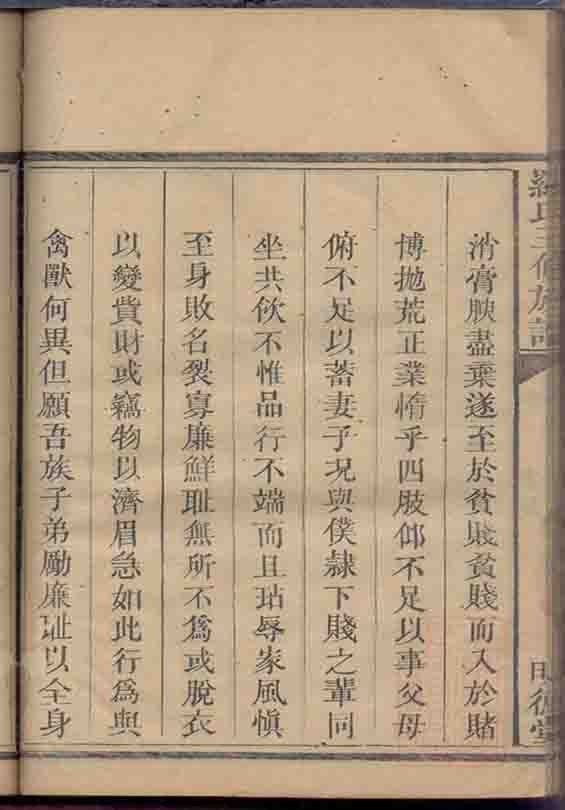 羅氏三修族譜
明德堂
消膏腴盡棄遂至於貧賤貧賤而入於賭
博拋荒正業惰乎四肢仰不足以事父母
俯不足以蓄妻子况與僕隸下賤之輩同
坐共飲不惟品行不端而且玷辱家風慎
至身敗名裂寡廉鮮耻無所不為或脫衣
以變貲財或竊物以濟眉急如此行為與
禽獸何異但願吾族子弟勵廉耻以全身